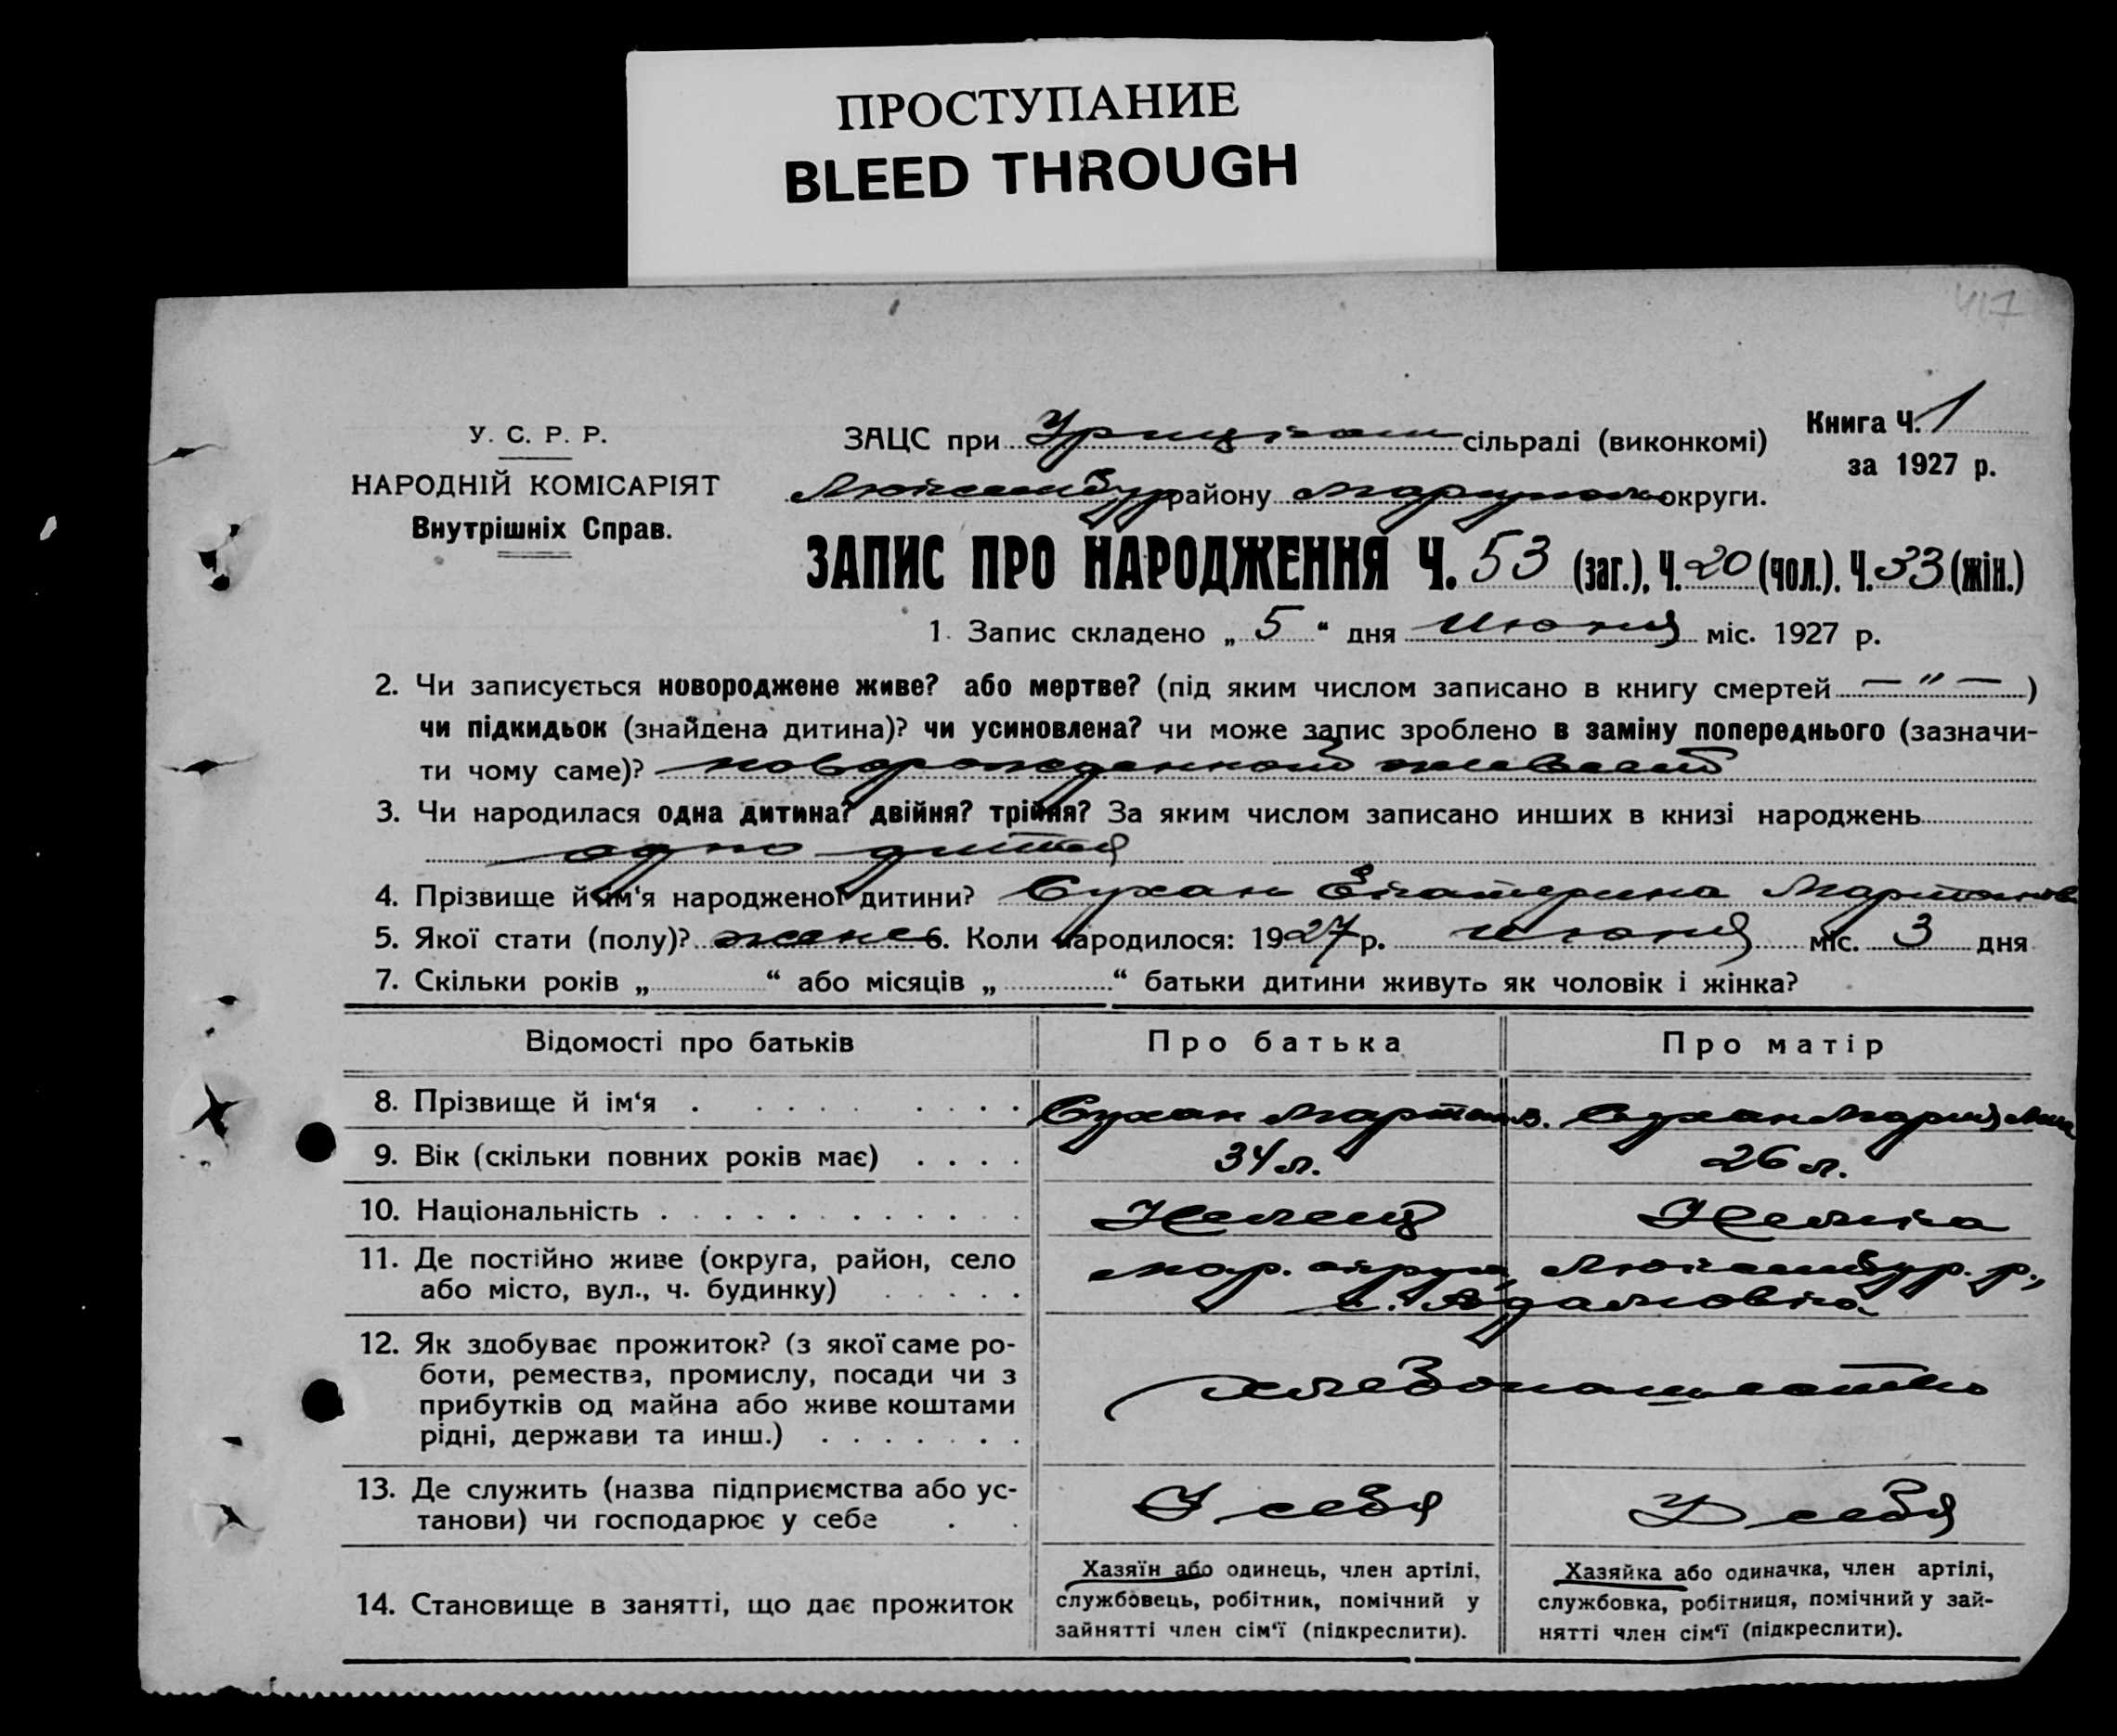 ПРОСТУПАНИЕ
BLEED THROUGH
417
У. С. Р. Р.
НАРОДНІЙ КОМІСАРІЯТ
Внутрішніх Справ.
Книга Ч. 1
за 1927 р.
ЗАЦС при Урицком сільраді (виконкомі)
Люксембур району Мариупольс округи.
ЗАПИС ПРО НАРОДЖЕННЯ Ч. 53 (заг.), Ч. 20 (чол.), Ч. 33 (жін.)
1. Запис складено „ 5 “ дня Июня міс. 1927 р.
2. Чи записується новороджене живе? або мертве? (під яким числом записано в книгу смертей — " — )
чи підкидьок (знайдена дитина)? чи усиновлена? чи може запис зроблено в заміну попереднього (зазначи-
ти чому саме)? новорожденной живой
3. Чи народилася одна дитина? двійня? трійня? За яким числом записано инших в книзі народжень
одно дитя
4. Прізвище й ім‘я народженої дитини? Сухан Екатерина Мартынов
5. Якої стати (полу)? женс 6. Коли народилося: 1927 р. Июня міс. 3 дня
7. Скільки років „ “ або місяців „ “ батьки дитини живуть як чоловік і жінка?
Відомості про батьків Про батька Про матір
8. Прізвище й ім‘я Сухан Мартын Сухан Мария
9. Вік (скільки повних років має) 34 л. 26 л.
10. Національність Немец Немка
11. Де постійно живе (округа, район, село
або місто, вул., ч. будинку)
Мар. округа, Люксембур. р.,
с. Адамовка
12. Як здобуває прожиток? (з якої саме ро-
боти, ремества, промислу, посади чи з
прибутків од майна або живе коштами
рідні, держави та инш.)
хлебопашество
13. Де служить (назва підприємства або ус-
танови) чи господарює у себе
У себя У себя
14. Становище в занятті, що дає прожиток
Хазяїн або одинець, член артілі,
службовець, робітник, помічний у
зайнятті член сім‘ї (підкреслити).
Хазяйка або одиначка, член артілі,
службовка, робітниця, помічний у зай-
нятті член сім‘ї (підкреслити).